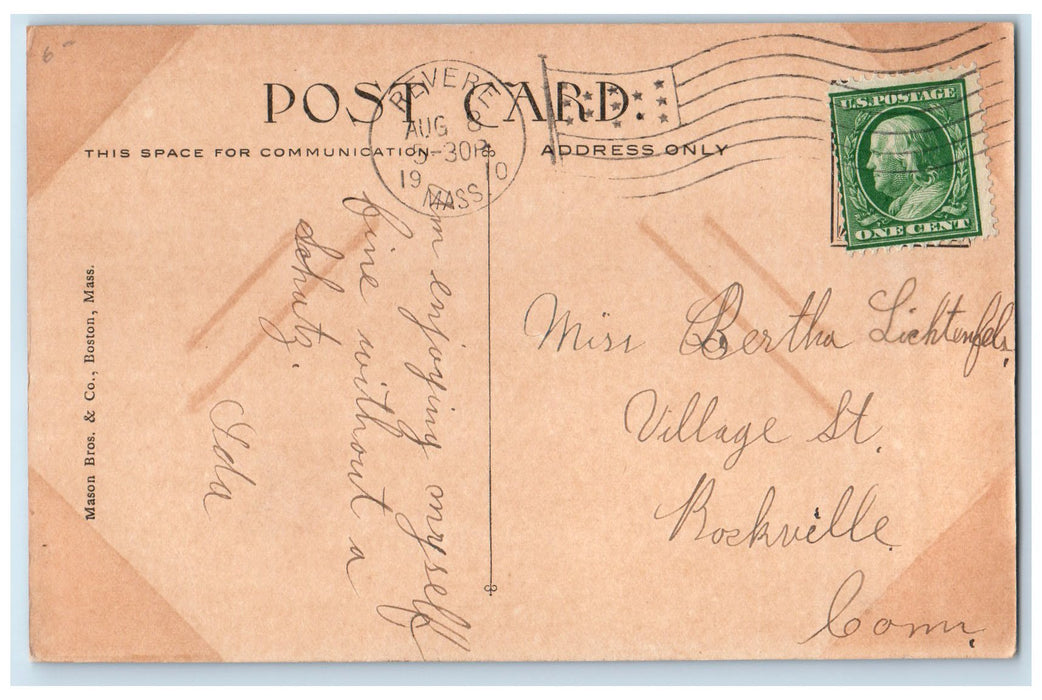 6
POST CARD.
THIS SPACE FOR COMMUNICATION
ADDRESS ONLY
REVERE
AUG 8
5-30P
19 10
MASS.
U.S. POSTAGE
ONE CENT
Am enjoying myself
fine without a
Schatz.
Ida
Miss Bertha Lichtenfels,
Village St.
Rockville.
Conn.
Mason Bros. & Co., Boston, Mass.